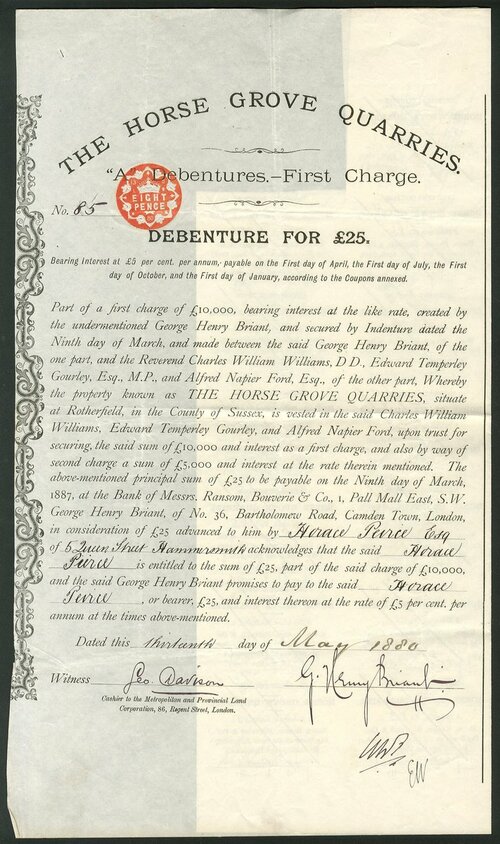 THE HORSE GROVE QUARRIES.
"A" Debentures.—First Charge.
No. 85
EIGHT
PENCE
DEBENTURE FOR £25.
Bearing Interest at £5 per cent. per annum, payable on the First day of April, the First day of July, the First
day of October, and the First day of January, according to the Coupons annexed.
Part of a first charge of £10,000, bearing interest at the like rate, created by
the undermentioned George Henry Briant, and secured by Indenture dated the
Ninth day of March, and made between the said George Henry Briant, of the
one part, and the Reverend Charles William Williams, D.D., Edward Temperley
Gourley, Esq., M.P., and Alfred Napier Ford, Esq., of the other part, Whereby
the property known as THE HORSE GROVE QUARRIES, situate
at Rotherfield, in the County of Sussex, is vested in the said Charles William
Williams, Edward Temperley Gourley, and Alfred Napier Ford, upon trust for
securing, the said sum of £10,000 and interest as a first charge, and also by way of
second charge a sum of £5,000 and interest at the rate therein mentioned. The
above-mentioned principal sum of £25 to be payable on the Ninth day of March,
1887, at the Bank of Messrs. Ransom, Bouverie & Co., 1, Pall Mall East, S.W.
George Henry Briant, of No. 36, Bartholomew Road, Camden Town, London,
in consideration of £25 advanced to him by Horace Peirce Esq
of 5 Queen Street Hammersmith acknowledges that the said Horace
Peirce is entitled to the sum of £25, part of the said charge of £10,000,
and the said George Henry Briant promises to pay to the said Horace
Peirce, or bearer, £25, and interest thereon at the rate of £5 per cent. per
annum at the times above-mentioned.
Dated this thirteenth day of May 1880
Witness Geo. Davison G. Henry Briant
Cashier to the Metropolitan and Provincial Land
Corporation, 86, Regent Street, London.
EW